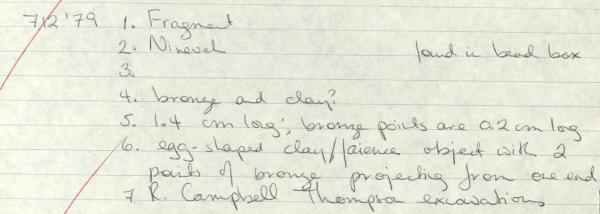 712'79 1. Fragment
2. Nineveh found in bead box
3.
4. bronze and clay?
5. 1.4 cm long; bronze points are 0.2 cm long
6. egg-shaped clay/faience object with 2
points of bronze projecting from one end
7 R. Campbell Thompson excavations